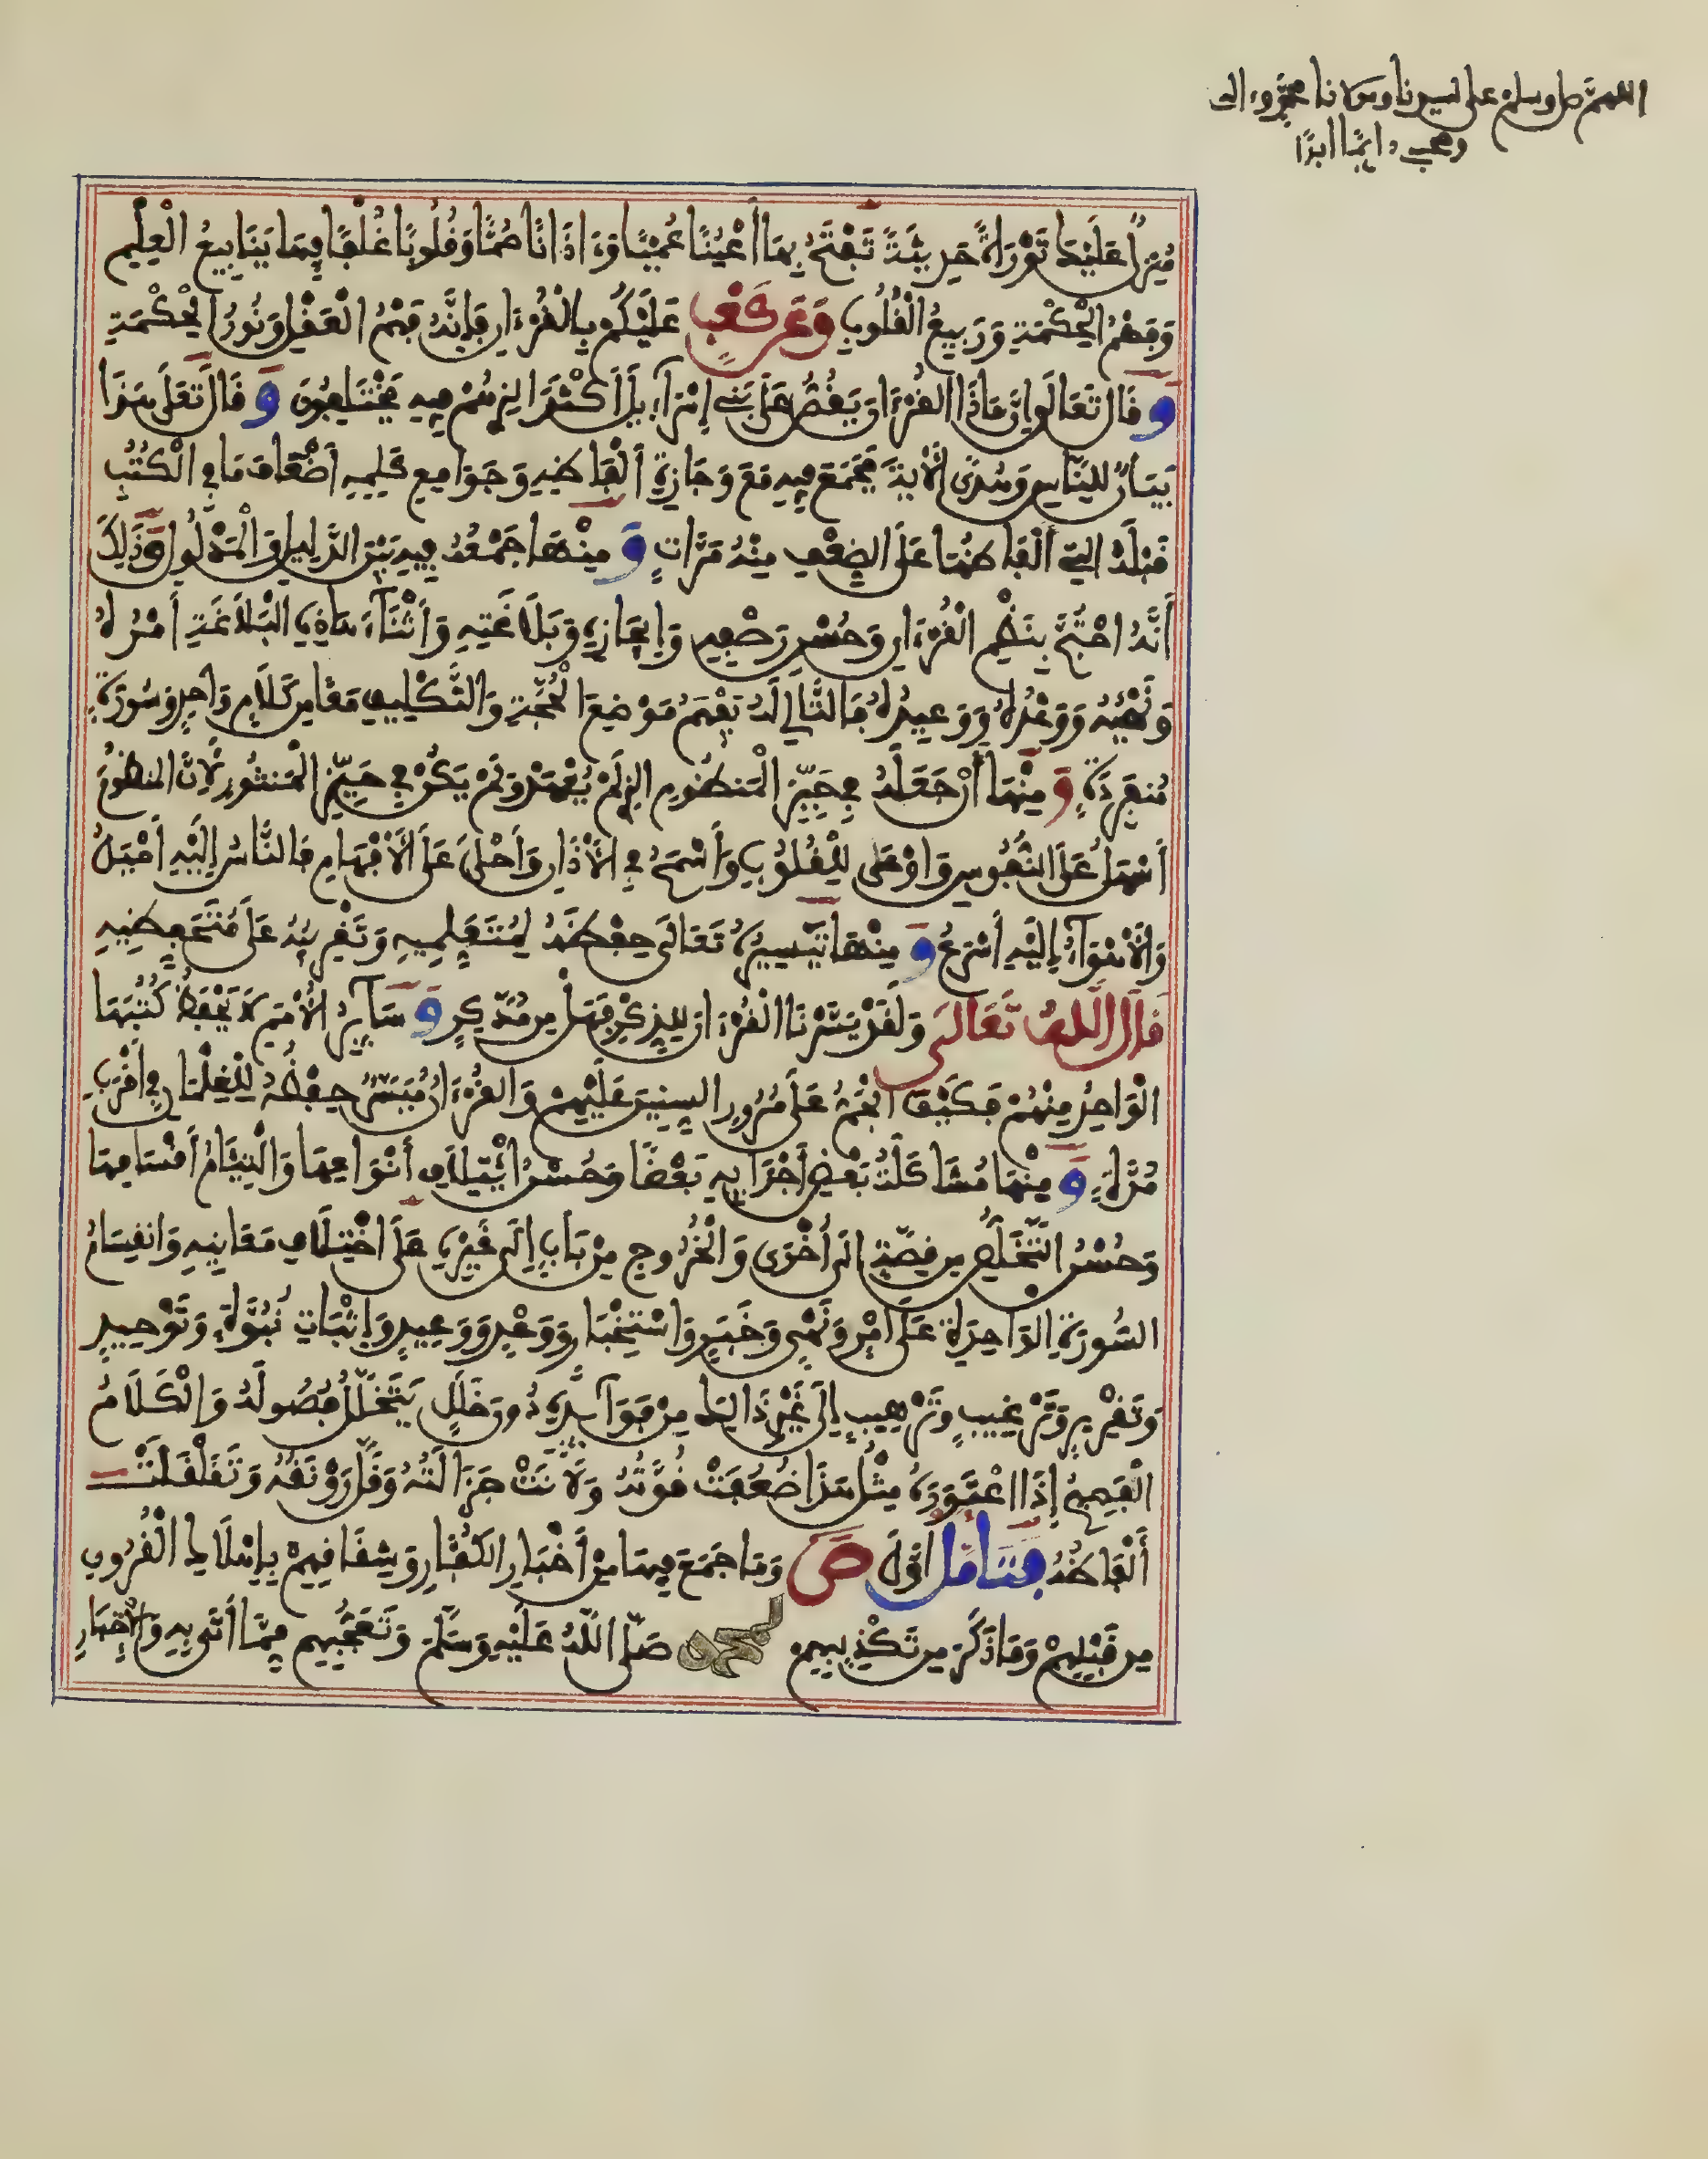 اللهم صل وسلم على سيدنا ومولانا محمد واله
وصحبه دايما ابدا
مُنَزِّلٌ عَلَيْكَ تَوْرَاةً حَدِيثَةً تَفْتَحُ بِهَا أَعْيُنًا عُمْيًا وَءَاذَانًا صُمًّا وَقُلُوبًا غُلْفًا فِيهَا يَنَابِيعُ الْعِلْمِ
وَفَهْمُ الْحِكْمَةِ وَرَبِيعُ الْقُلُوبِ وَعَن كَعْبٍ عَلَيْكُم بِالْقُرْءَانِ فَإِنَّهُ فَهْمُ الْعَقْلِ وَنُورُ الْحِكْمَةِ
وَقَالَ تَعَالَى إِنَّ هَاذَا الْقُرْءَانَ يَقُصُّ عَلَى بَنِي إِسْرَآءِيلَ أَكْثَرَ الذِي هُمْ فِيهِ يَخْتَلِفُونَ وَقَالَ تَعَلَى هَذَا
بَيَانٌ لِلنَّاسِ وَهُدًى الْآيَةَ فَجَمَعَ فِيهِ مَعَ وَجَازَةِ أَلْفَاظِهِ وَجَوَامِعِ كَلِمِهِ أَضْعَافَ مَا فِي الْكُتُبِ
قَبْلَهُ التِي أَلْفَاظُهَا عَلَى الضِّعْفِ مِنْهُ مَرَّاتٍ وَمِنْهَا جَمْعُهُ فِيهِ بَيْنَ الدَّلِيلِ وَالْمَدْلُولِ وَذَلِكَ
أَنَّهُ احْتَجَّ بِنَظْمِ الْقُرْءَانِ وَحُسْنِ رَصْفِهِ وَإِيجَازِهِ وَبَلَاغَتِهِ وَأَثْنَآءَ هَاذِهِ الْبَلَاغَةِ أَمْرُهُ
وَنَهْيُهُ وَوَعْدُهُ وَوَعِيدُهُ فَالتَّالِي لَهُ يَفْهَمُ مَوْضِعَ الْحُجَّةِ وَالتَّكْلِيفِ مَعًا مِن كَلَامٍ وَاحِدٍ وَسُورَةٍ
مُنفَرِدَةٍ وَمِنْهَا أَنْ جَعَلَهُ فِي حَيِّزِ الْمَنظُومِ الذِي لَمْ يُعْهَدْ وَلَمْ يَكُنْ فِي حَيِّزِ الْمَنثُورِ لِأَنَّ الْمَنظُومَ
أَسْهَلُ عَلَى النُّفُوسِ وَأَوْعَى لِلْقُلُوبِ وَأَسْمَحُ فِي الْأَذَانِ وَأَحْلَى عَلَى الْأَفْهَامِ فَالنَّاسُ إِلَيْهِ أَمْيَلُ
وَالْأَهْوَآءُ إِلَيْهِ أَسْرَعُ وَمِنْهَا تَيْسِيرُهُ تَعَالَى حِفْظَهُ لِمُتَعَلِّمِيهِ وَتَقْرِيبُهُ عَلَى مُتَحَفِّظِيهِ
قَالَ اللَّهُ تَعَالَى وَلَقَدْ يَسَّرْنَا الْقُرْءَانَ لِلذِّكْرِ فَهَلْ مِن مُّدَّكِرٍ وَسَآيِرُ الْأُمَمِ لَا يَحْفَظُ كُتُبَهَا
الْوَاحِدُ مِنْهُمْ فَكَيْفَ الْجَمُّ عَلَى مُرُورِ السِّنِينَ عَلَيْهِمْ وَالْقُرْءَانُ مُيَسَّرٌ حِفْظُهُ لِلْغِلْمَانِ فِي أَقْرَبِ
مُدَّةٍ وَمِنْهَا مُشَاكَلَةُ بَعْضِ أَجْزَايِهِ بَعْضًا وَحُسْنُ ائْتِلَافِ أَنْوَاعِهَا وَالْتِيَامُ أَقْسَامِهَا
وَحُسْنُ التَّخَلُّصِ مِن قِصَّةٍ إِلَى أُخْرَى وَالْخُرُوجِ مِنْ بَابٍ إِلَى غَيْرِهِ عَلَى اخْتِلَافِ مَعَانِيهِ وَانقِسَامُ
السُّورَةِ الْوَاحِدَةِ عَلَى أَمْرٍ وَنَهْيٍ وَخَبَرٍ وَاسْتِخْبَارٍ وَوَعْدٍ وَوَعِيدٍ وَإِثْبَاتِ نُبُوَّةٍ وَتَوْحِيدٍ
وَتَقْرِيرٍ وَتَرْغِيبٍ وَتَرْهِيبٍ إِلَى غَيْرِ ذَالِكَ مِنْ فَوَآئِدِهِ دُونَ خَلَلٍ يَتَخَلَّلُ فُصُولَهُ وَالْكَلَامُ
الْفَصِيحُ إِذَا اعْتَوَرَهُ مِثْلُ هَذَا ضَعُفَتْ قُوَّتُهُ وَلَانَتْ جَزَالَتُهُ وَقَلَّ رَوْنَقُهُ وَتَقَلْقَلَتْ
أَلْفَاظُهُ فَتَأَمَّلْ أَوَّلَ صَ وَمَا جَمَعَ فِيهَا مِنْ أَخْبَارِ الْكُفَّارِ وَشِقَاقِهِمْ بِإِهْلَاكِ الْقُرُونِ
مِن قَبْلِهِمْ وَمَا ذَكَرَ مِن تَكْذِيبِهِم لمحمد صَلَّى اللَّهُ عَلَيْهِ وَسَلَّمَ وَتَعَجُّبِهِم مِمَّا أَتَى بِهِ وَالْإِخْبَارِ